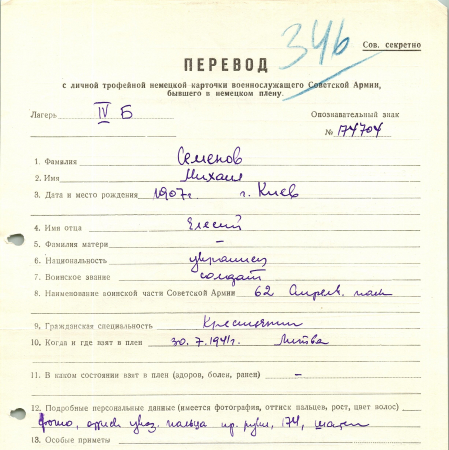 346
Сов. секретно
ПЕРЕВОД
с личной трофейной немецкой карточки военнослужащего Советской Армии,
бывшего в немецком плену.
Лагерь IV Б
Опознавательный знак
№ 174704
1. Фамилия Семенов
2. Имя Михаил
3. Дата и место рождения 1907г. г. Киев
4. Имя отца Елесей
5. Фамилия матери –
6. Национальность украинец
7. Воинское звание солдат
8. Наименование воинской части Советской Армии 62 полк
9. Гражданская специальность Крестьянин
10. Когда и где взят в плен 30.7.1941г. Литва
11. В каком состоянии взят в плен (здоров, болен, ранен) –
12. Подробные персональные данные (имеется фотография, оттиск пальцев, рост, цвет волос)
фото, оттиск указ. пальца пр. руки, 174,
13. Особые приметы